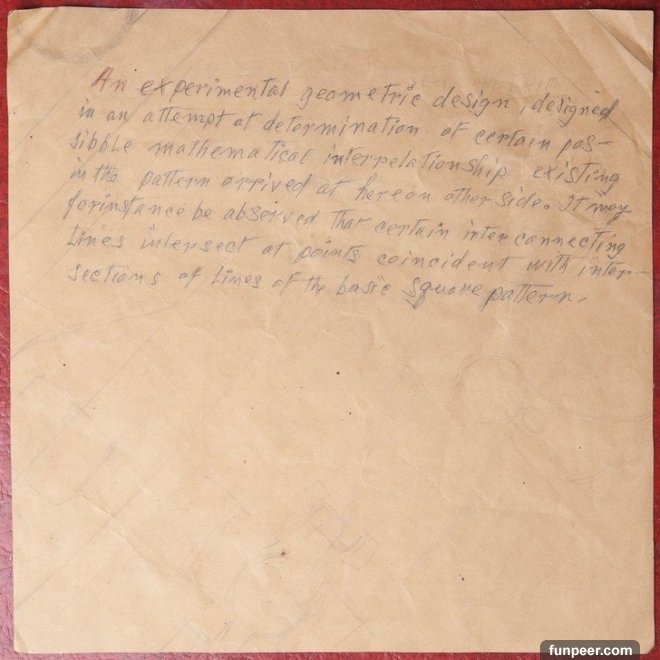 An experimental geometric design, designed
in an attempt at determination of certain pos-
sibble mathematical interrelationship existing
in the pattern arrived at hereon other side. It may
forinstance be observed that certain interconnecting
lines intersect at points coincident with inter-
sections of lines of the basic square pattern.
funpeer.com